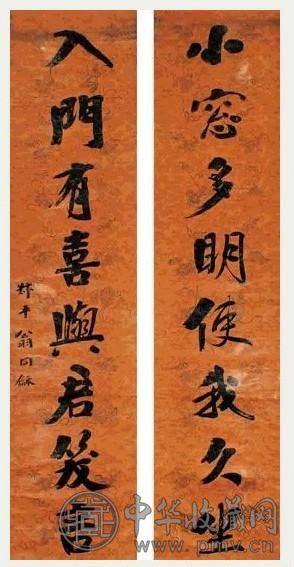 小窓多明使我久坐
入門有喜與君笑言
叔平翁同龢
中华收藏网
www.pmv.cn